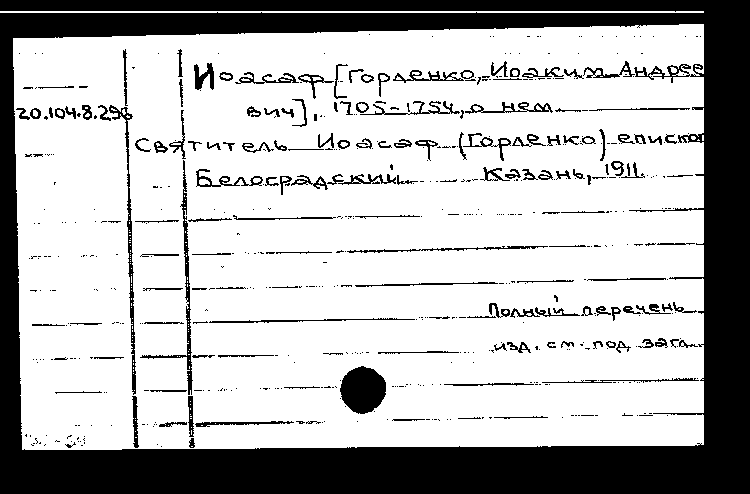 Иоасаф [Горленко, Иоаким Андрее
вич], 1705-1754, о нем.
20.104.8.296
Святитель Иоасаф (Горленко) епископ
Белоградский. Казань, 1911.
Полный перечень
изд. см. под загл.